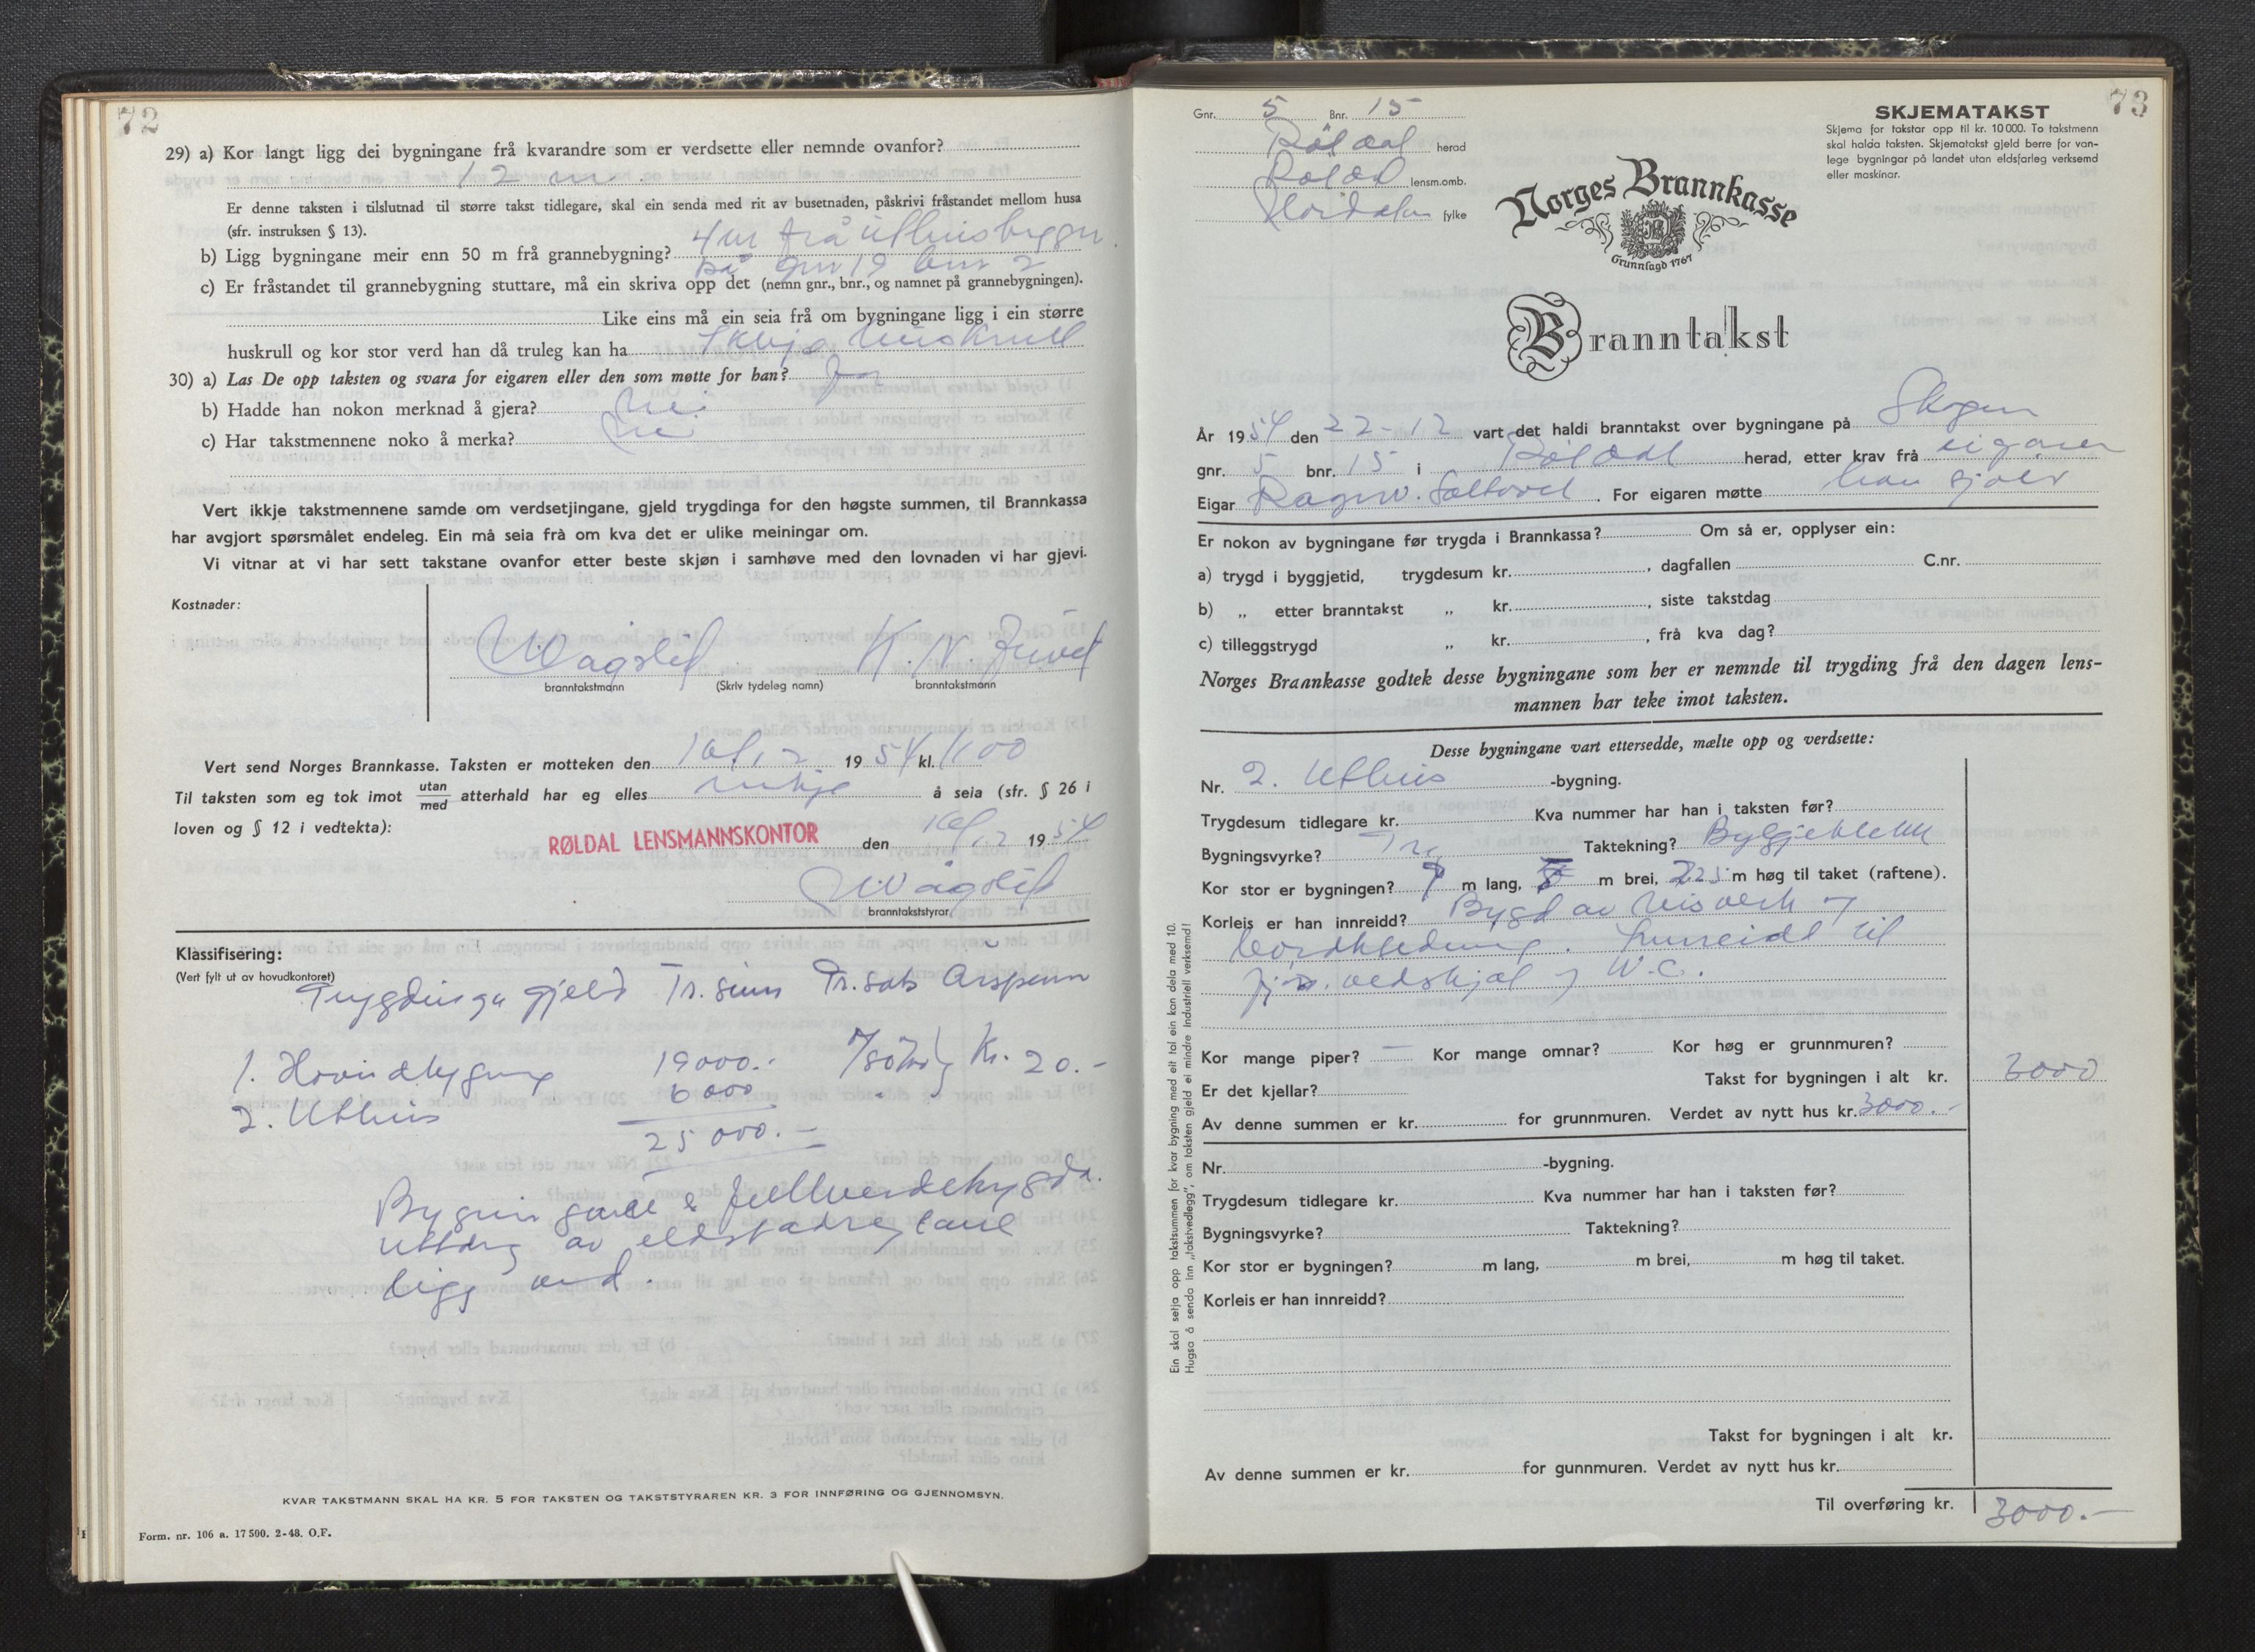 72
29) a) Kor langt ligg dei bygningane frå kvarandre som er verdsette eller nemnde ovanfor?
12 m.
Er denne taksten i tilslutnad til større takst tidlegare, skal ein senda med rit av busetnaden, påskrivi fråstandet mellom husa
(sfr. instruksen § 13).
b) Ligg bygningane meir enn 50 m frå grannebygning? 4 m frå uthusbygn.
på gnr 19 bnr 2
c) Er fråstandet til grannebygning stuttare, må ein skriva opp det (nemn gnr., bnr., og namnet på grannebygningen).
Like eins må ein seia frå om bygningane ligg i ein større
huskrull og kor stor verd han då truleg kan ha Ikkje huskrull
30) a) Las De opp taksten og svara for eigaren eller den som møtte for han? Ja
b) Hadde han nokon merknad å gjera? Nei
c) Har takstmennene noko å merka? Nei
Vert ikkje takstmennene samde om verdsetjingane, gjeld trygdinga for den høgste summen, til Brannkassa
har avgjort spørsmålet endeleg. Ein må seia frå om kva det er ulike meiningar om.
Vi vitnar at vi har sett takstane ovanfor etter beste skjøn i samhøve med den lovnaden vi har gjevi.
Kostnader:
K. N.
branntakstmann (Skriv tydeleg namn) branntakstmann
Vert send Norges Brannkasse. Taksten er motteken den 16/12 1954 kl. 1100
Til taksten som eg tok imot utan/med atterhald har eg elles inkje å seia (sfr. § 26 i
loven og § 12 i vedtekta):
RØLDAL LENSMANNSKONTOR den 16/12 1954
branntakststyrar
Klassifisering:
(Vert fylt ut av hovudkontoret)
Trygdinga gjeld Tr.sum Pr.sats Årspm
1. Hovudbygning 19000.- Kr. 20.-
2. Uthus 6000
25000.-
Bygningane e fullverdetrygda.
ligg ved.
KVAR TAKSTMANN SKAL HA KR. 5 FOR TAKSTEN OG TAKSTSTYRAREN KR. 3 FOR INNFØRING OG GJENNOMSYN.
Form. nr. 106 a. 17500. 2-48. O.F.
73
Gnr. 5 Bnr. 15
Röldal herad
Röldal lensm.omb.
Hordaland fylke
SKJEMATAKST
Skjema for takstar opp til kr. 10 000. To takstmenn
skal halda taksten. Skjematakst gjeld berre for van-
lege bygningar på landet utan eldsfarleg verksemd
eller maskinar.
Norges Brannkasse
Grunnlagd 1767
Branntakst
År 1954 den 22-12 vart det haldi branntakst over bygningane på Skogen
gnr. 5 bnr. 15 i Röldal herad, etter krav frå eigaren
Eigar Ragnv. . For eigaren møtte han sjølv
Er nokon av bygningane før trygda i Brannkassa? Om så er, opplyser ein:
a) trygd i byggjetid, trygdesum kr. , dagfallen C.nr.
b) „ etter branntakst „ kr. , siste takstdag
c) tilleggstrygd „ kr. , frå kva dag?
Norges Brannkasse godtek desse bygningane som her er nemnde til trygding frå den dagen lens-
mannen har teke imot taksten.
Desse bygningane vart ettersedde, mælte opp og verdsette:
Nr. 2. Uthus -bygning.
Trygdesum tidlegare kr. Kva nummer har han i taksten før?
Bygningsvyrke? Tre Taktekning? Bylgjeblekk
Kor stor er bygningen? 7 m lang, m brei, m høg til taket (raftene).
Korleis er han innreidd? Bygd av bisverk og
bordkledning. Innreidt til
vedskjol og W.C.
Kor mange piper? — Kor mange omnar? Kor høg er grunnmuren?
Er det kjellar? Takst for bygningen i alt kr. 3000
Av denne summen er kr. for grunnmuren. Verdet av nytt hus kr. 3000.-
Nr. -bygning.
Trygdesum tidlegare kr. Kva nummer har han i taksten før?
Bygningsvyrke? Taktekning?
Kor stor er bygningen? m lang, m brei, m høg til taket.
Korleis er han innreidd?
Takst for bygningen i alt kr.
Av denne summen er kr. for gunnmuren. Verdet av nytt hus kr.
Til overføring kr. 3000.-
Ein skal setja opp takstsummen for kvar bygning med eit tal ein kan dela med 10.
Hugsa å senda inn „takstvedlegg", om taksten gjeld ei mindre industriell verksemd!